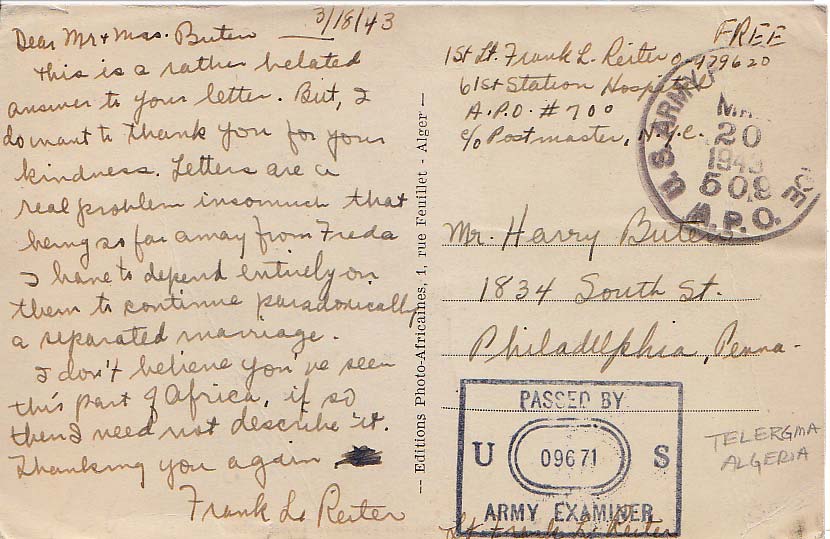 3/18/43
Dear Mr + Mrs. Buten
This is a rather belated
answer to your letter. But, I
do want to thank you for your
kindness. Letters are a
real problem insomuch that
being so far away from Freda
I have to depend entirely on
them to continue paradoxically
a separated marriage.
I don't believe you've seen
this part of Africa, if so
then I need not describe it.
Thanking you again
Frank L. Reiter
-- Editions Photo-Africaines, 1, rue Feuillet - Alger --
FREE
1st Lt. Frank L. Reiter O-479620
61st Station Hospital
A.P.O. #700
c/o Postmaster, N.Y.C.
U.S. ARMY
20
1943
509
A.P.O.
Mr. Harry Buten
1834 South St.
Philadelphia, Penna-
PASSED BY
U 09671 S
ARMY EXAMINER
Lt Frank L. Reiter
TELERGMA
ALGERIA